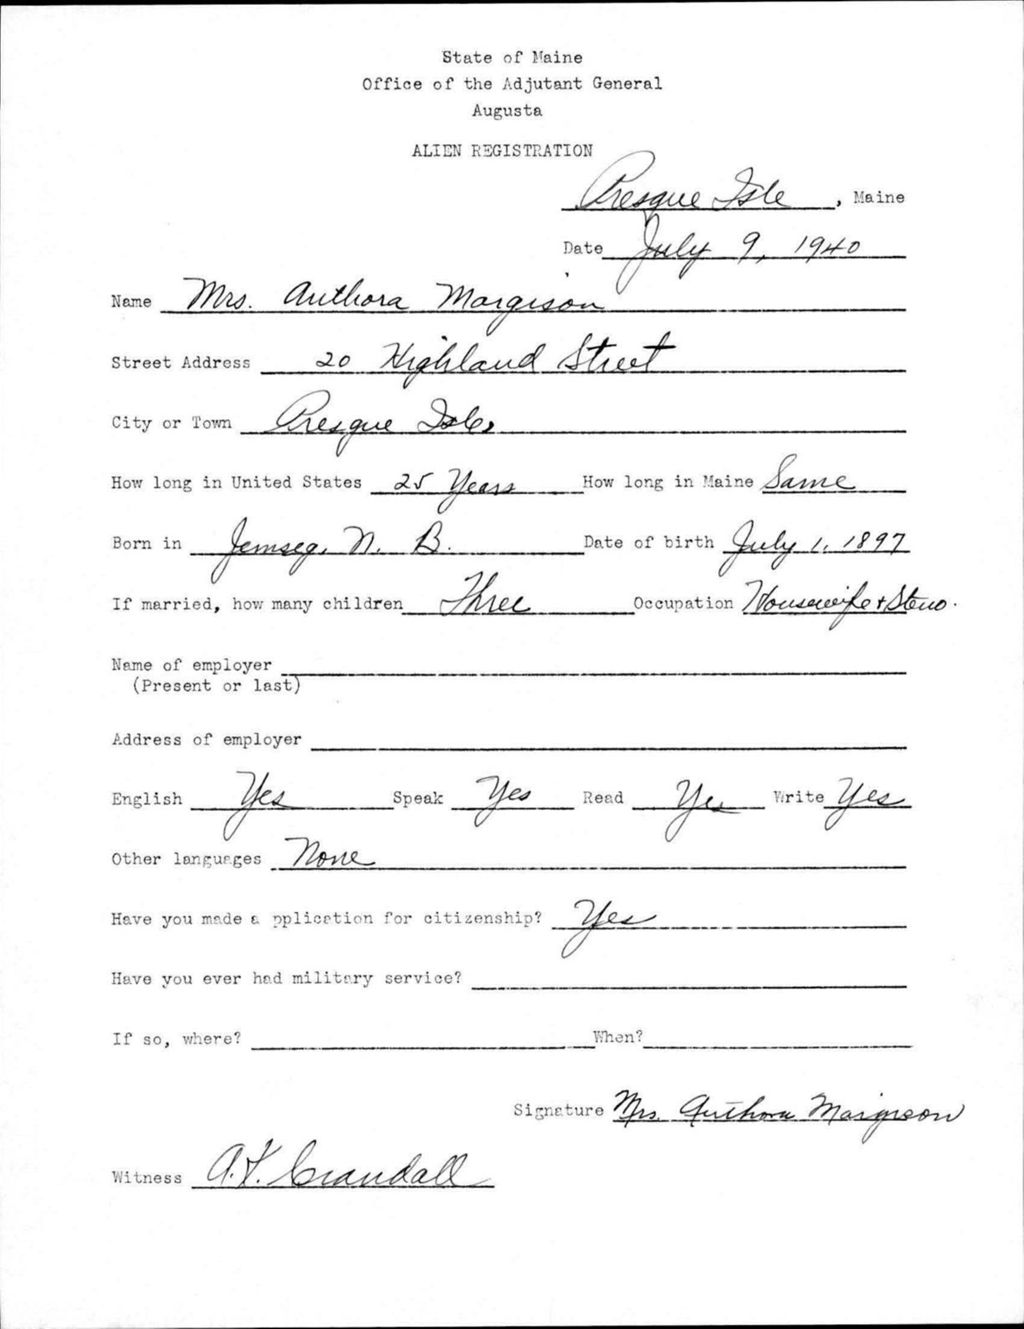 State of Maine
Office of the Adjutant General
Augusta
ALIEN REGISTRATION
Presque Isle, Maine
Date July 9, 1940
Name Mrs. Authora Margison
Street Address 20 Highland Street
City or Town Presque Isle,
How long in United States 25 Years How long in Maine Same
Born in Jemseg, N. B. Date of birth July 1, 1897
If married, how many children Three Occupation Housewife + Steno.
Name of employer
(Present or last)
Address of employer
English Yes Speak Yes Read Yes Write Yes
Other languages None
Have you made a pplication for citizenship? Yes
Have you ever had military service?
If so, where? When?
Signature Mrs. Authora Margison
Witness A. F. Crandall